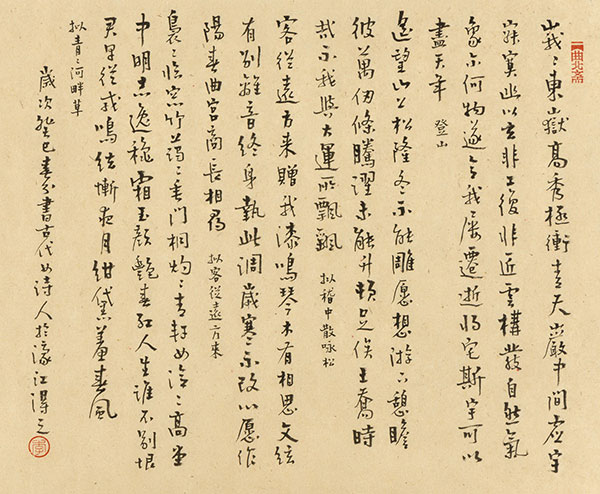 峩〻東嶽高秀極衝青天巖中間虛宇
寂寞幽以玄非工復非匠雲構發自然氣
象尓何物遂令我屡遷逝將宅斯宇可以
盡天年 登山
遙望山上松隆冬不能雕愿想游下憩瞻
彼萬仞條騰躍未能升頓足俟王喬時
哉不我與大運所飄飖 拟嵇中散咏松
客從遠方来贈我漆鳴琴木有相思文絃
有别離音終身執此調歲寒不改心愿作
陽春曲宮商長相尋 拟客從遠方来
裊〻临窗竹藹〻垂門桐灼〻青軒女泠〻高堂
中明志逸秋霜玉顏艷春紅人生誰不别恨
君早從戎鳴弦慚夜月紺黛羞春風
拟青〻河畔草
歲次癸巳春分書古代女詩人於濠江得之